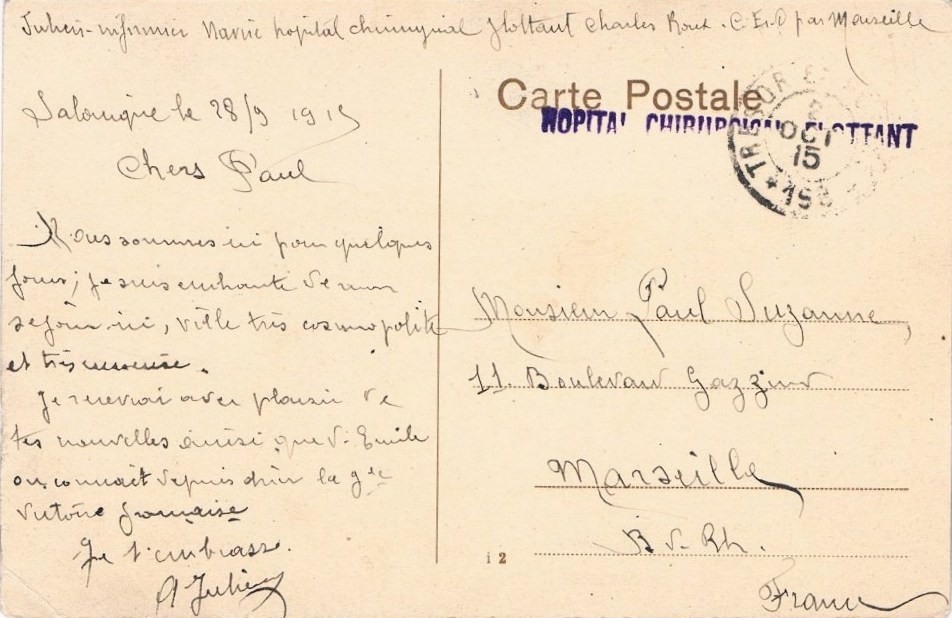 Julien infirmier Navire hopital chirurgical flottant Charles Roux. C.E.O par Marseille
Salonique le 28/9 1915
Chers Paul
Nous sommes ici pour quelques
jours; je suis enchanté de mon
séjour ici, ville très cosmopolite
et très curieuse.
Je recevrai avec plaisir de
tes nouvelles ainsi que d'Emile
on connait depuis hier la gde
victoire française
Je t'embrasse.
A Julien
Carte Postale
HOPITAL CHIRURGICAL FLOTTANT
TRESOR
OCT
15
Monsieur Paul Suzanne,
11. Boulevard Gazzino
Marseille
B d. Rh.
France
i 2